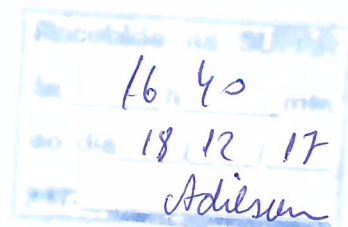 Recebido na SUPRAM
às 16 h 40 min
do dia 18 / 12 / 17
por: Adilson